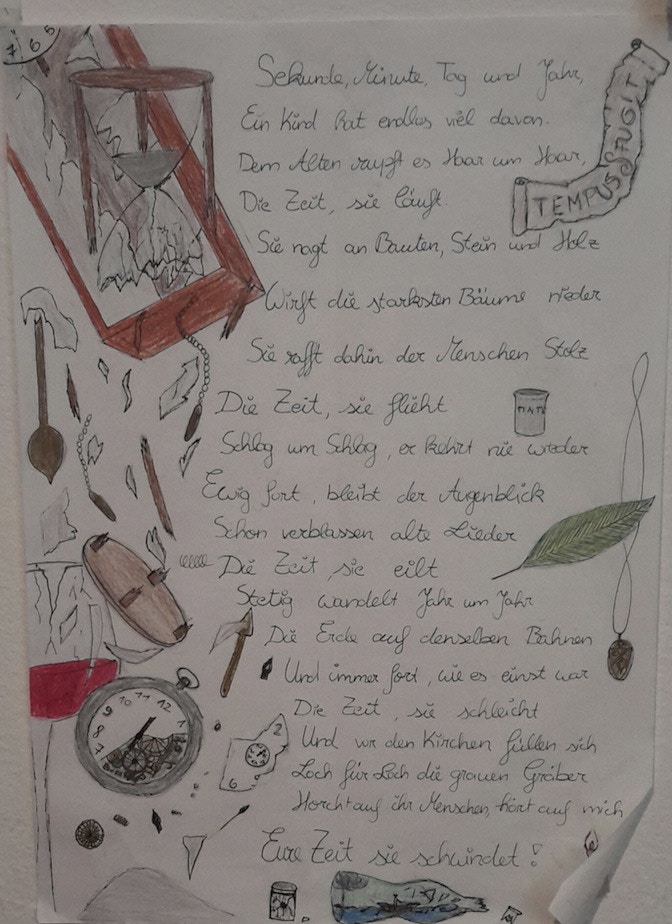 7 6 5
Sekunde, Minute, Tag und Jahr,
Ein Kind hat endlos viel davon.
Dem Alten rupft es Haar um Haar,
Die Zeit, sie läuft.
TEMPUS FUGIT
Sie nagt an Bauten, Stein und Holz
Wirft die starksten Bäume nieder
Sie rafft dahin der Menschen Stolz
Die Zeit, sie flieht
Schlag um Schlag, er kehrt nie wieder
Ewig fort, bleibt der Augenblick
Schon verblassen alte Lieder
Die Zeit, sie eilt
Stetig wandelt Jahr um Jahr
Die Erde auf denselben Bahnen
Und immer fort, wie es einst war
Die Zeit, sie schleicht
Und vor den Kirchen füllen sich
Loch für Loch die grauen Gräber
Horcht auf ihr Menschen, hört auf mich
Eure Zeit sie schwindet!
10 11 12 1
9
8
7
2
6